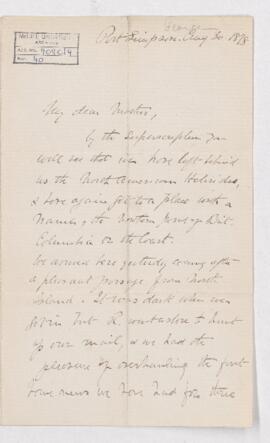 George
Port Simpson. Aug 30. 1878
McGILL UNIVERSITY
ARCHIVES
ACC. NO.
REF. 40
My dear Mother,
by the superscription you
will see that we have left behind
us the North American Hebrides,
& have again got to a place with a
name, the Northern
Columbia on the Coast.
We arrived here yesterday evening after
a pleasant passage from North
Island. It was dark when we
got in but R. went ashore to hunt
up our mail, & we had the
pleasure of overhauling the first
home news we have had for three